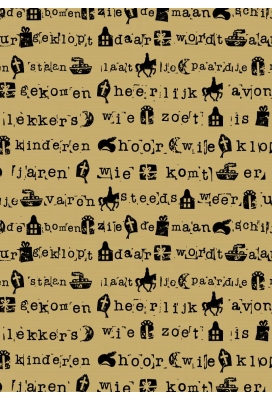 de bomen zie de maan schij
ur geklopt daar wordt a
en 'staan laat je paardje
gekomen heerlijk avon
lekkers wie zoet is
kinderen hoor wie klo
jaren wie komt er
je varen steeds weer u
de bomen zie de maan schij
ur geklopt daar wordt a
en 'staan laat je paardje
gekomen heerlijk avon
lekkers wie zoet is
kinderen hoor wie klop
jaren wie komt er